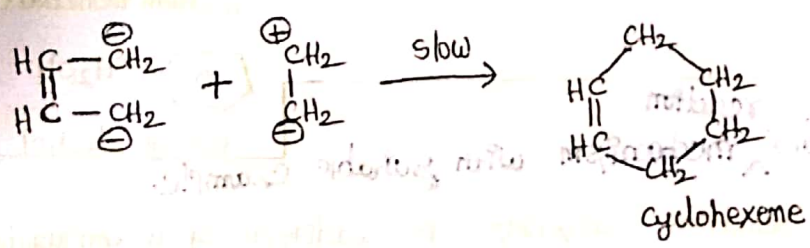 HC — CH₂ ⊖
||
HC — CH₂ ⊖
+
⊕ CH₂
|
CH₂ ⊖
slow
⟶
CH₂
HC CH₂
|| CH₂
HC CH₂
cyclohexene